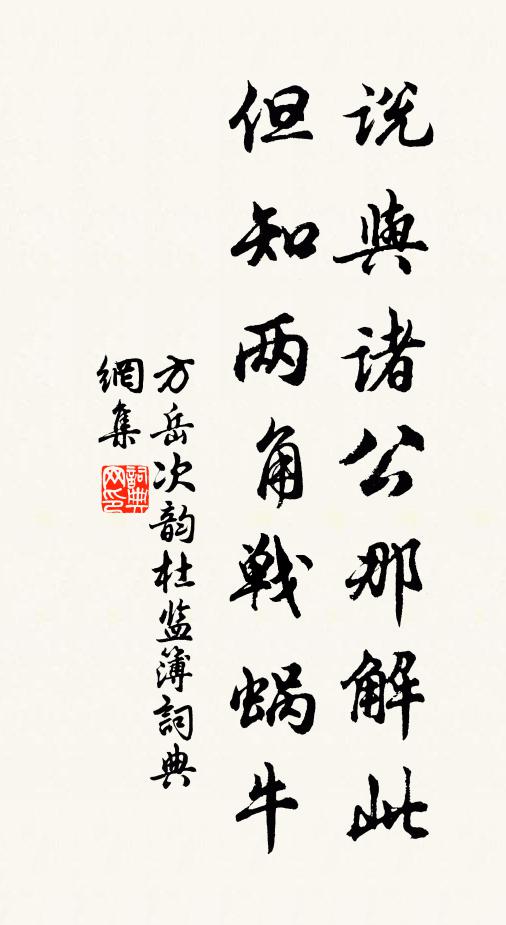 说與诸公那解此
但知两角戰蜗牛
方岳次韵杜监簿詞典
網集
詞典
网印